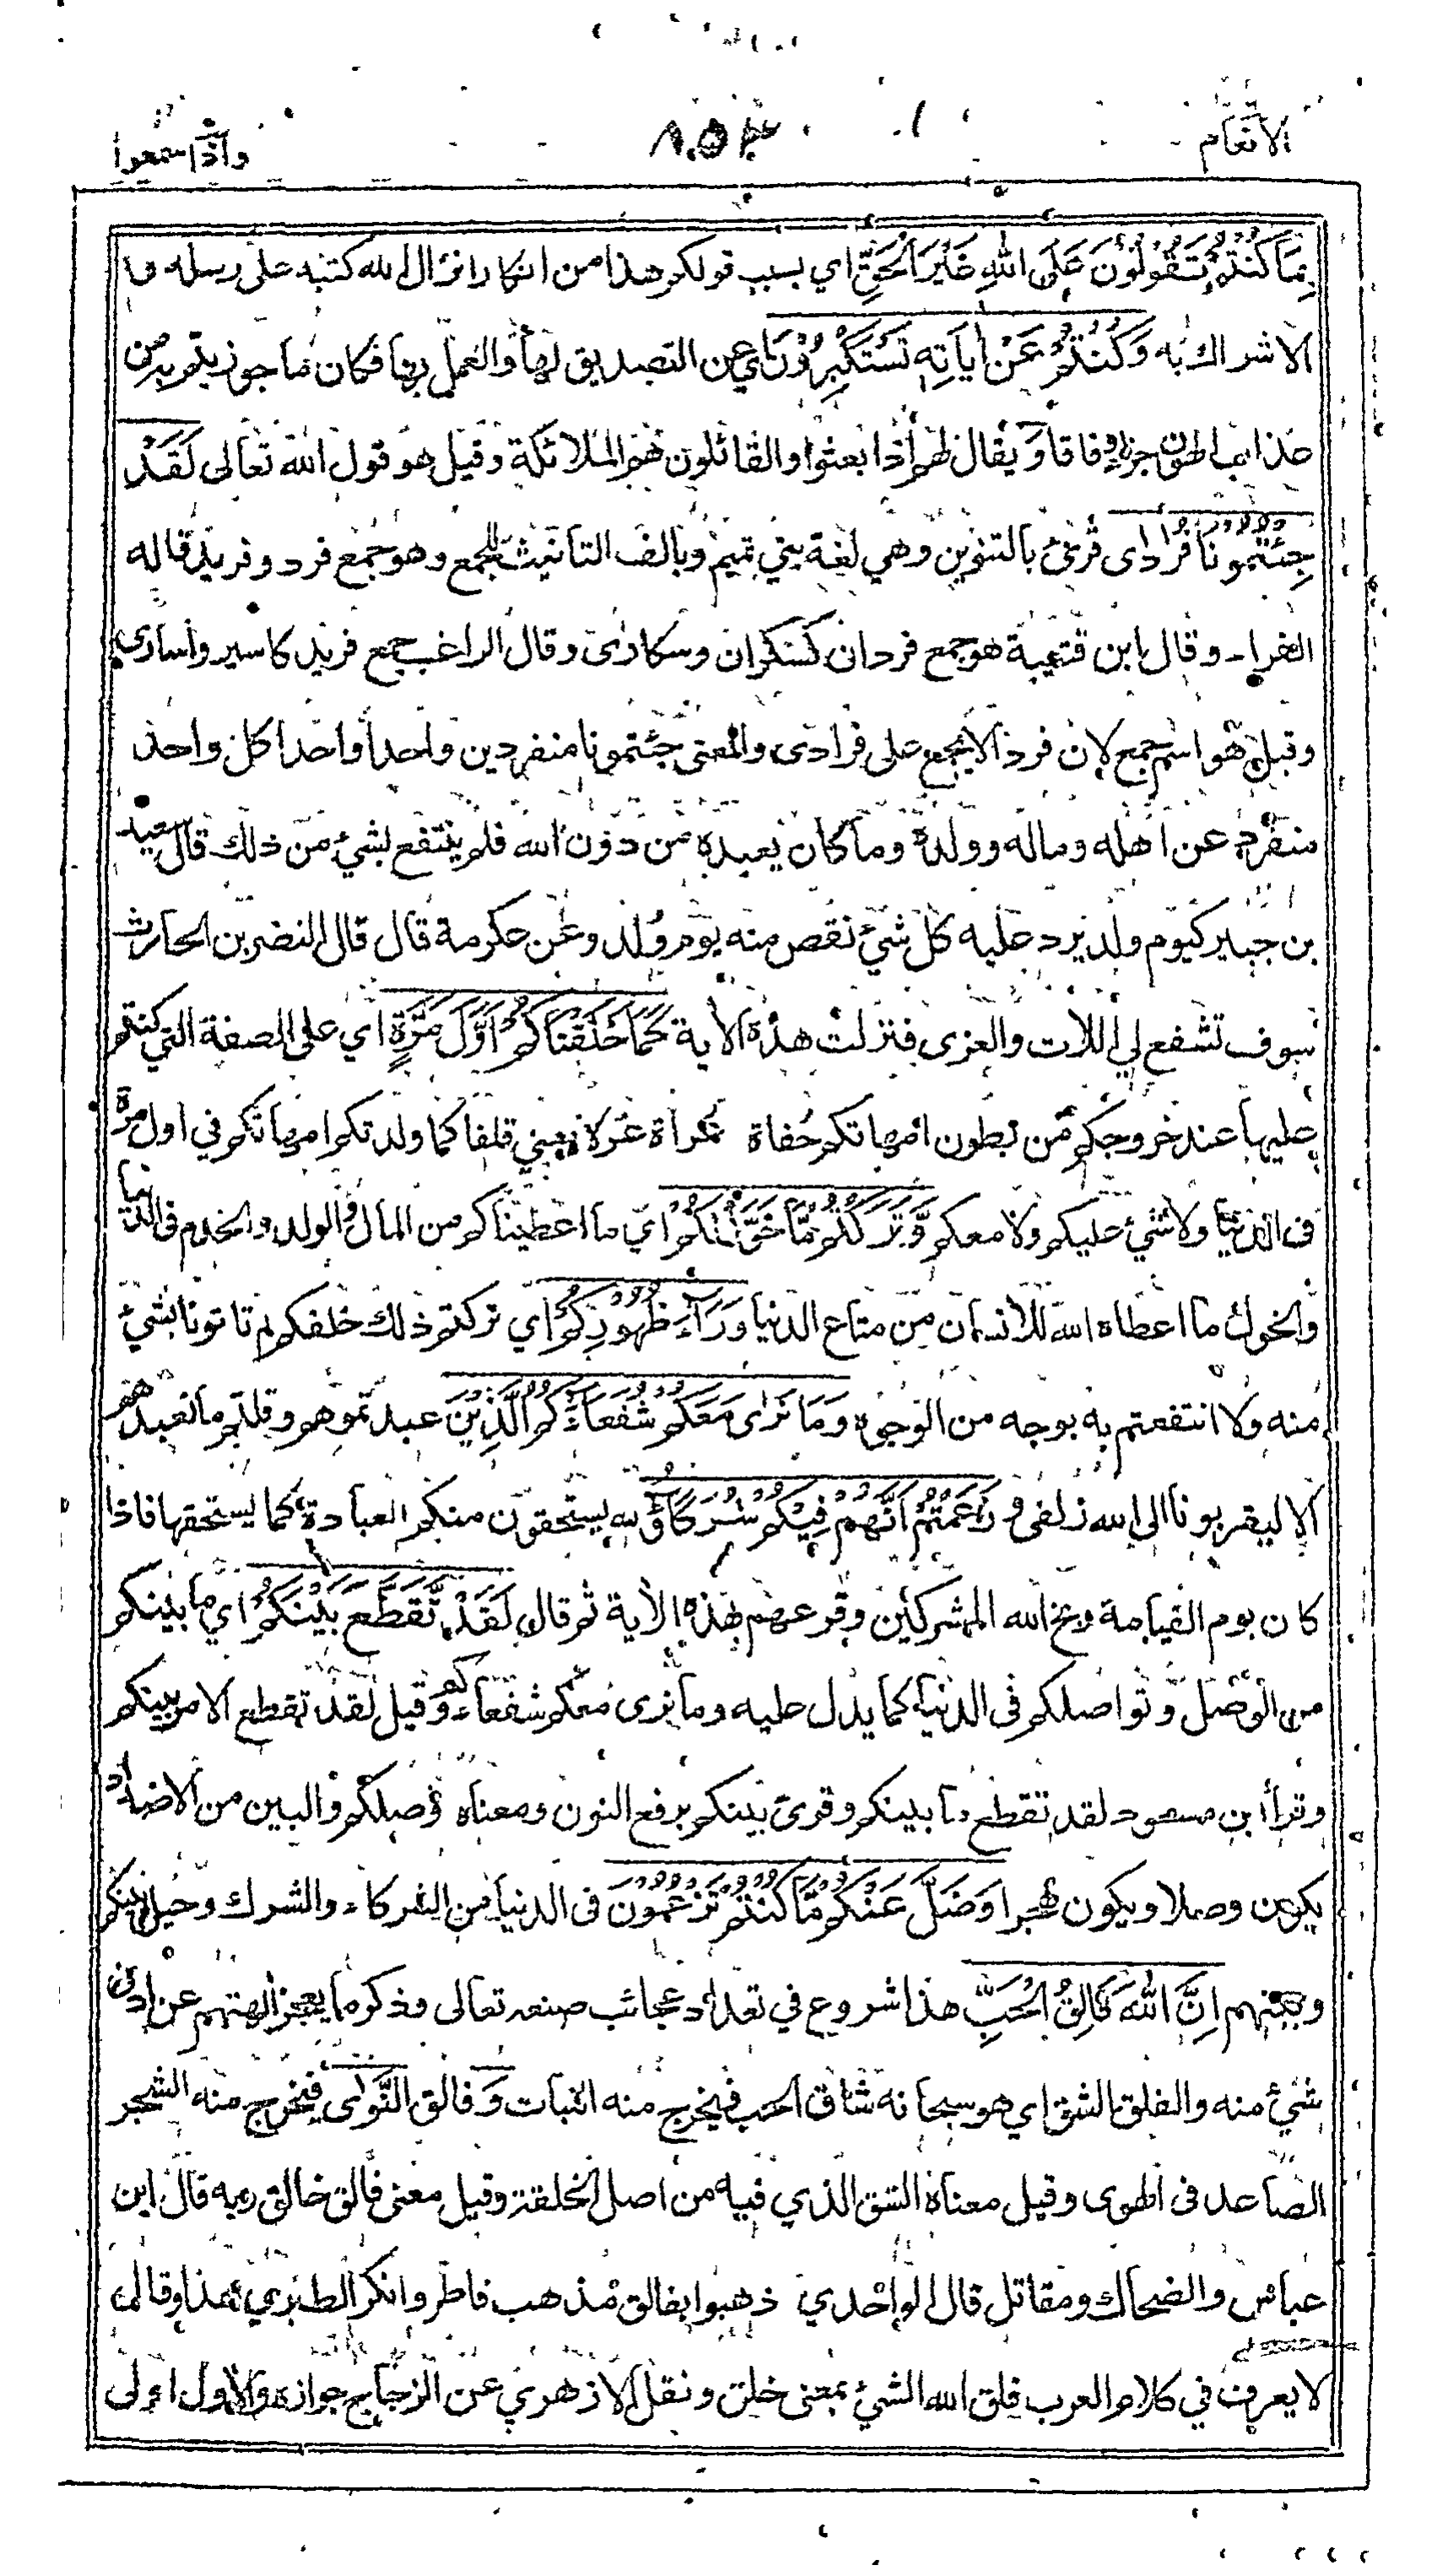 الانعام ٨٥٣ واذا سمعوا
بِمَا كُنْتُمْ تَقُولُونَ عَلَى اللهِ غَيْرَ الْحَقِّ اي بسبب قولكم هذا من انكار انزال الله كتبه على رسله و
الاشراك به وَكُنْتُمْ عَنْ اٰيَاتِهِ تَسْتَكْبِرُوْنَ اي عن التصديق لها والعمل بها فكان ما جوزيتم به من
عذاب الهون جزاء وفاقا وَ يقال لهم اذا بعثوا والقائلون هم الملائكة وقيل هو قول الله تعالى لَقَدْ
جِئْتُمُوْنَا فُرَادٰى قرئ بالتنوين وهي لغة بني تميم وبالف التأنيث للجمع وهو جمع فرد وفريد قاله
الفراء وقال ابن قتيبة هو جمع فردان كسكران وسكارى وقال الراغب جمع فريد كاسير واسارى
وقيل هو اسم جمع لان فردا لا يجمع على فرادى والمعنى جئتمونا منفردين واحدا واحدا كل واحد
منفرد عن اهله وماله وولده وما كان يعبده من دون الله فلم ينتفع بشئ من ذلك قال سعيد
بن جبير كيوم ولد يرد عليه كل شئ نقص منه يوم ولد وعن عكرمة قال قال النضر بن الحارث
سوف تشفع لي اللات والعزى فنزلت هذه الاية كَمَا خَلَقْنَاكُمْ اَوَّلَ مَرَّةٍ اي على الصفة التي كنتم
عليها عند خروجكم من بطون امهاتكم حُفاة عُراة غرلا يعني قلفا كما ولدتكم امهاتكم في اول مرة
فى الدنيا ولا شئ عليكم ولا معكم وَّتَرَكْتُمْ مَّا خَوَّلْنٰكُمْ اي ما اعطيناكم من المال والولد والخدم فى الدنيا
والخول ما اعطاه الله للانسان من متاع الدنيا وَرَاءَ ظُهُورِكُمْ اي تركتم ذلك خلفكم لم تاتونا بشئ
منه ولا انتفعتم به بوجه من الوجوه وَمَا نَرٰى مَعَكُمْ شُفَعَاءَكُمُ الَّذِيْنَ عبدتموهم وقلتم ما نعبدهم
الا ليقربونا الى الله زلفى و زَعَمْتُمْ اَنَّهُمْ فِيْكُمْ شُرَكَاؤُ لله يستحقون منكم العبادة كما يستحقها فاذا
كان يوم القيامة وبخ الله المشركين وقرعهم بهذه الاية ثم قال لَقَدْ تَّقَطَّعَ بَيْنَكُمْ اي ما بينكم
من الوصل وتواصلكم فى الدنيا كما يدل عليه وما نرى معكم شفعاءكم وقيل لقد تقطع الامر بينكم
وقرأ ابن مسعود لقد تقطع ما بينكم وقرئ بينكم برفع النون ومعناه وصلكم والبين من الاضداد
يكون وصلا ويكون هجرا وَضَلَّ عَنْكُمْ مَّا كُنْتُمْ تَزْعُمُوْنَ فى الدنيا من الشركاء والشرك وحيل بينكم
وبينهم اِنَّ اللهَ فَالِقُ الْحَبِّ هذا شروع في تعداد عجائب صنعه تعالى وذكر ما يعجز الهتهم عن ادنى
شئ منه والفلق الشق اي هو سبحانه شاق الحب فيخرج منه النبات وَ فالق النَّوٰى فيخرج منه الشجر
الصاعد فى الهوى وقيل معناه الشق الذي فيه من اصل الخلقة وقيل معنى فالق خالق وبه قال ابن
عباس والضحاك ومقاتل قال الواحدي ذهبوا بفالق مذهب فاطر وانكر الطبري هذا وقال
لا يعرف في كلام العرب فلق الله الشئ بمعنى خلق ونقل الازهري عن الزجاج جوازه والاول اولى